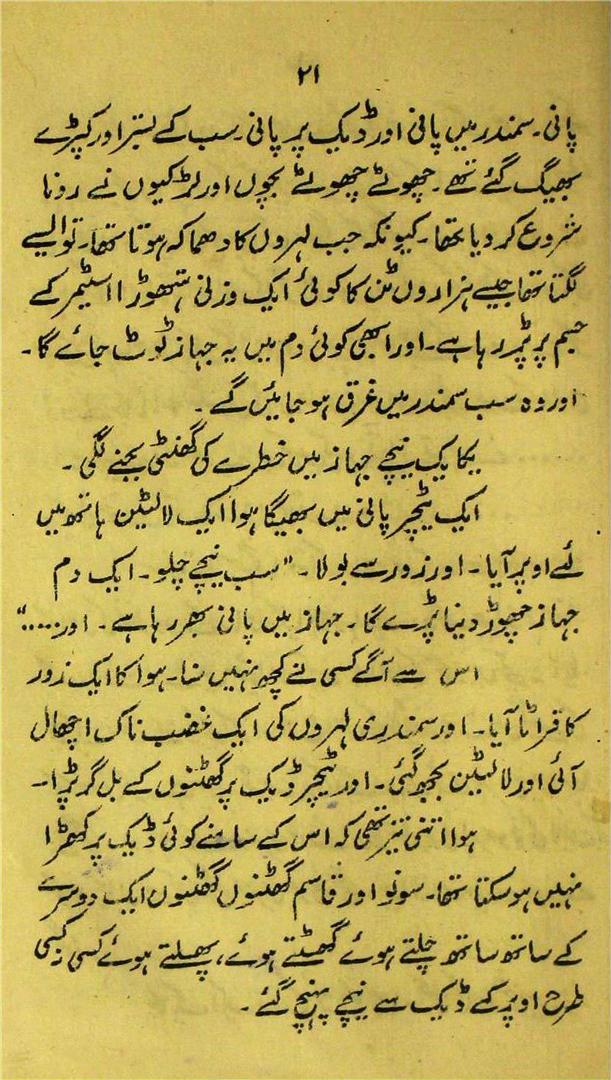 ۲۱
پانی۔ سمندر میں پانی اور ڈیک پر پانی۔ سب کے بستر اور کپڑے
بھیگ گئے تھے۔ چھوٹے چھوٹے بچوں اور لڑکیوں نے رونا
شروع کر دیا تھا۔ کیونکہ جب لہروں کا دھماکہ ہوتا تھا۔ تو ایسے
لگتا تھا جیسے ہزاروں ٹن کا کوئی ایک وزنی ہتھوڑا اسٹیمر کے
جسم پر پڑ رہا ہے۔ اور ابھی کوئی دم میں یہ جہاز ٹوٹ جائے گا۔
اور وہ سب سمندر میں غرق ہو جائیں گے۔
یکایک نیچے جہاز میں خطرے کی گھنٹی بجنے لگی۔
ایک ٹیچر پانی میں بھیگا ہوا ایک لالٹین ہاتھ میں
لئے اوپر آیا۔ اور زور سے بولا۔ "سب نیچے چلو۔ ایک دم
جہاز چھوڑ دینا پڑے گا۔ جہاز میں پانی بھر رہا ہے۔ اور....."
اس سے آگے کسی نے کچھ نہیں سنا۔ ہوا کا ایک زور
کا فراٹا آیا۔ اور سمندری لہروں کی ایک غضب ناک اچھال
آئی اور لالٹین بجھ گئی۔ اور ٹیچر ڈیک پر گھٹنوں کے بل گر پڑا۔
ہوا اتنی تیز تھی کہ اس کے سامنے کوئی ڈیک پر کھڑا
نہیں ہو سکتا تھا۔ سونو اور قاسم گھٹنوں گھٹنوں ایک دوسرے
کے ساتھ ساتھ چلتے ہوئے گھسٹتے ہوئے، پھسلتے ہوئے کسی نہ کسی
طرح اوپر کے ڈیک سے نیچے پہنچ گئے۔